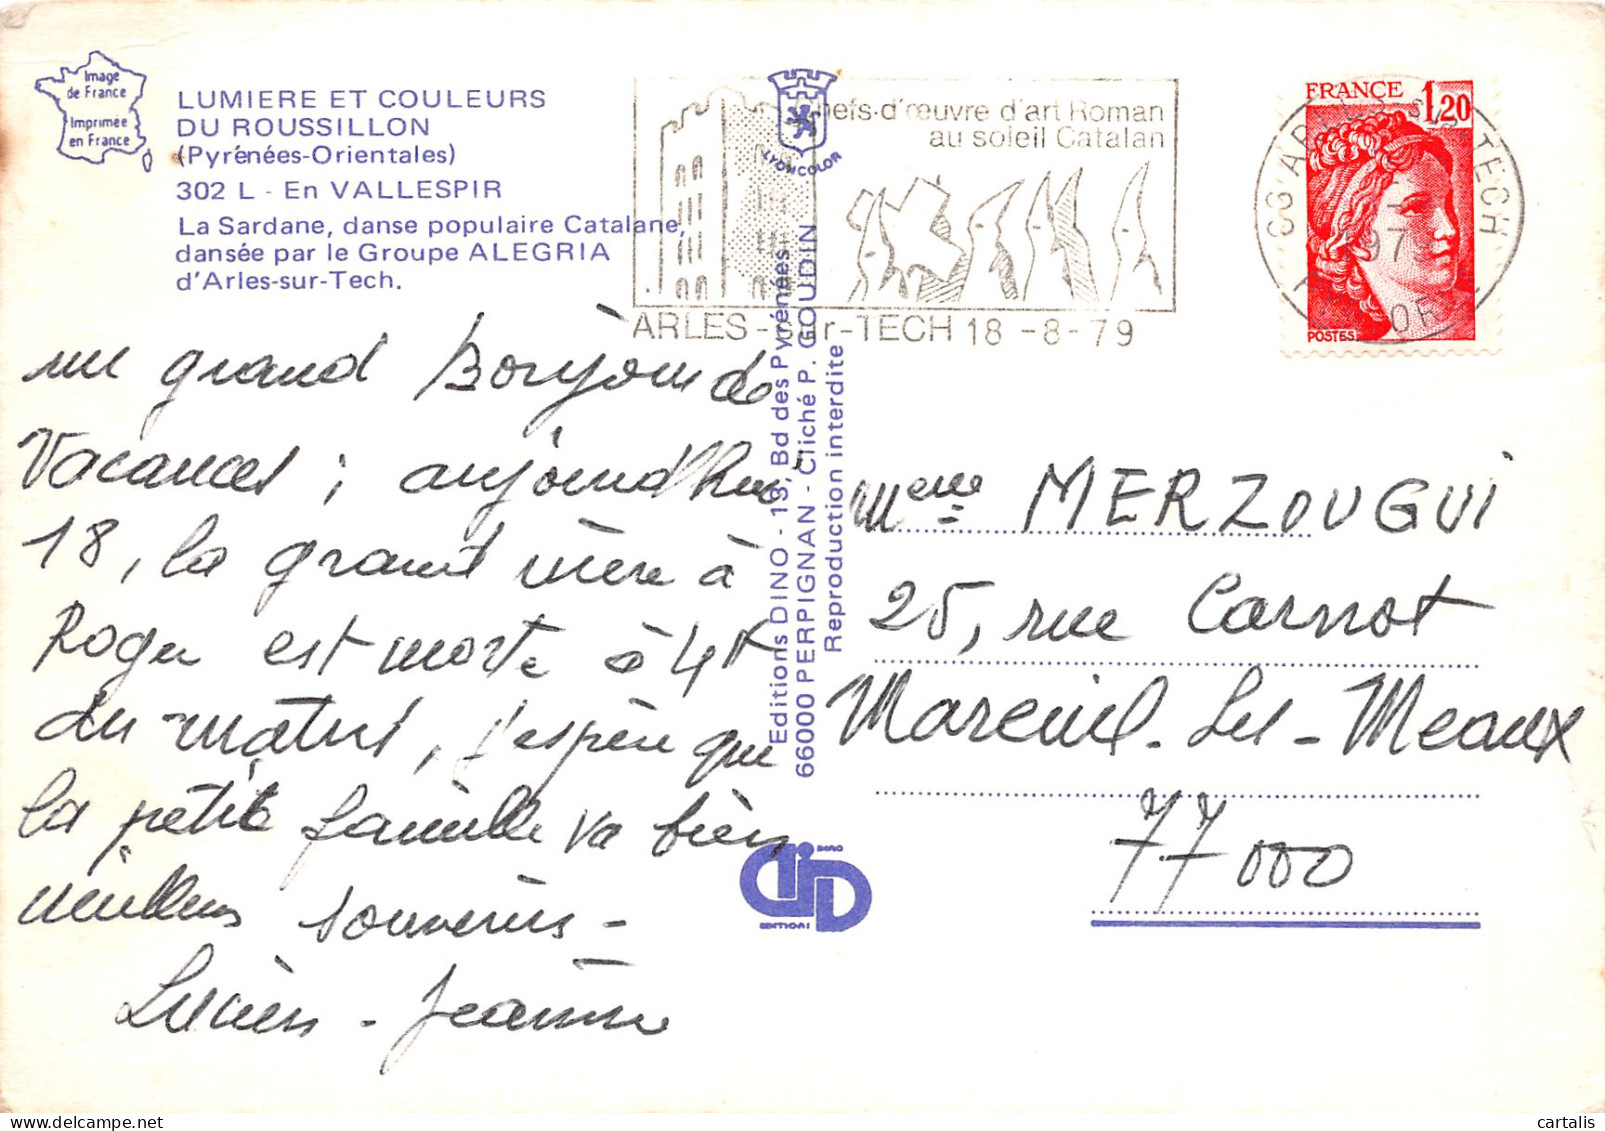 Image
de France
Imprimée
en France
LUMIERE ET COULEURS
DU ROUSSILLON
(Pyrénées-Orientales)
302 L - En VALLESPIR
La Sardane, danse populaire Catalane,
dansée par le Groupe ALEGRIA
d'Arles-sur-Tech.
LYONCOLOR
Chefs-d'œuvre d'art Roman
au soleil Catalan
ARLES-sur-TECH 18-8-79
FRANCE 1,20
POSTES
un grand Bonjour de
Vacances ; aujourd'hui
18, la grand mère à
Roger est morte à 4h
du matin, j'espère que
la petite famille va bien
meilleurs souvenirs -
Lucien - Jeanine
Editions DINO - 13, Bd des Pyrénées
66000 PERPIGNAN - Cliché P. GOUDIN
Reproduction interdite
DINO
EDITIONS
Mme MERZOUGUI
25, rue Carnot
Mareuil-Les-Meaux
77000
cartalis